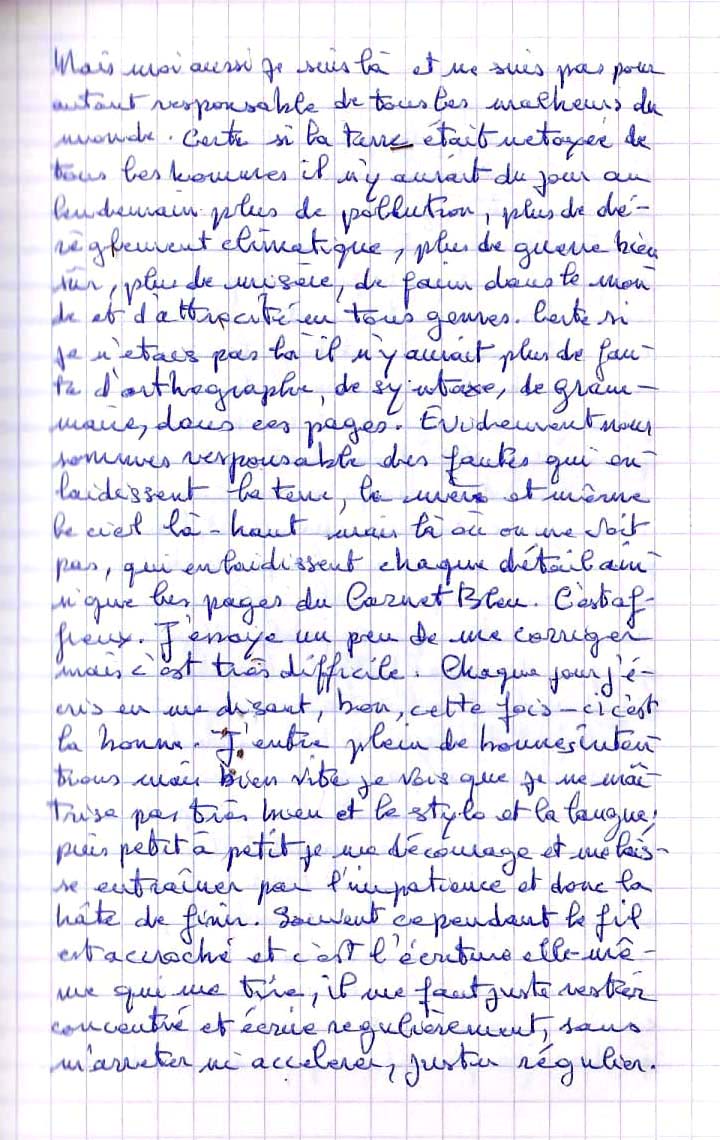 Mais moi aussi je suis là et ne suis pas pour
autant responsable de tous les malheurs du
monde. Certe si la terre était netoyée de
tous les hommes il n'y aurait du jour au
lendemain plus de pollution, plus de dé-
règlement climatique, plus de guerre bien
sûr, plus de misère, de faim dans le mon
de et d'attrocité en tous genres. Certe si
je n'étais pas là il n'y aurait plus de fau-
te d'orthographe, de syntaxe, de gram-
maire, dans ces pages. Evidemment nous
sommes responsable des fautes qui en-
laidissent la terre, la mère et même
le ciel là-haut mais là où on ne voit
pas, qui enlaidissent chaque détail ain-
si que les pages du Carnet Bleu. C'est af-
freux. J'essaye un peu de me corriger
mais c'est très difficile. Chaque jour j'é-
cris en me disant, bon, cette fois-ci c'est
la bonne. J'entre plein de bonnes inten
tions mais bien vite je vois que je ne maî-
trise pas très bien et le stylo et la langue;
puis petit à petit je me décourage et me lais-
se entraîner par l'impatience et donc la
hâte de finir. Souvent cependant le fil
est accroché et c'est l'écriture elle-mê-
me qui me tire, il me faut juste rester
concentré et écrire regulièrement, sans
m'arreter ni accelerer, juste régulier.